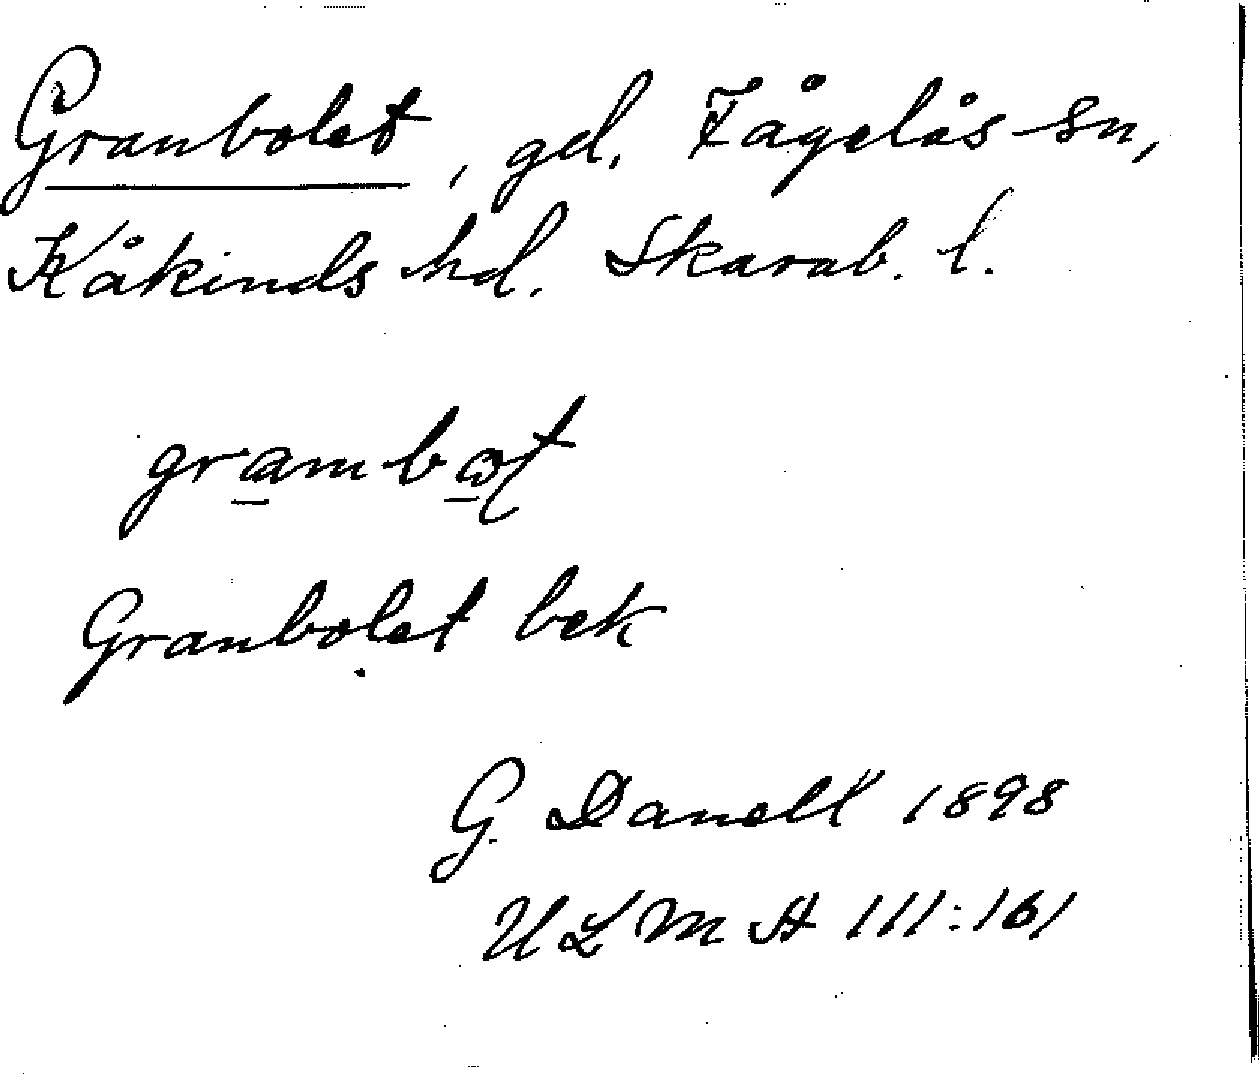 Granbolet, gd. Fågelås sn,
Kåkinds hd. Skarab. l.
Granbolet bek
G. Danell 1898
ULMA 111:161